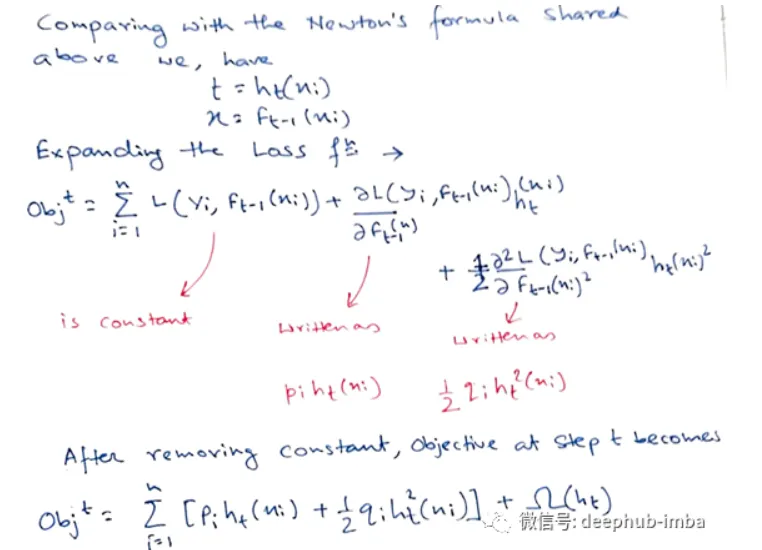 Comparing with the Newton's formula shared
above we, have
t = ht(xi)
x = Ft-1(xi)
Expanding the Loss fn →
Obj^t = Σ_{i=1}^{n} L(yi, Ft-1(xi)) + ∂L(yi, Ft-1(xi) / ∂Ft-1(x) ht(xi)
+ 1/2 ∂²L(yi, Ft-1(xi) / ∂Ft-1(xi)² ht(xi)²
is constant
written as
written as
pi ht(xi)
1/2 qi ht²(xi)
After removing constant, Objective at step t becomes
Obj^t = Σ_{i=1}^{n} [Pi ht(xi) + 1/2 qi ht²(xi)] + Ω(ht)
微信号: deephub-imba